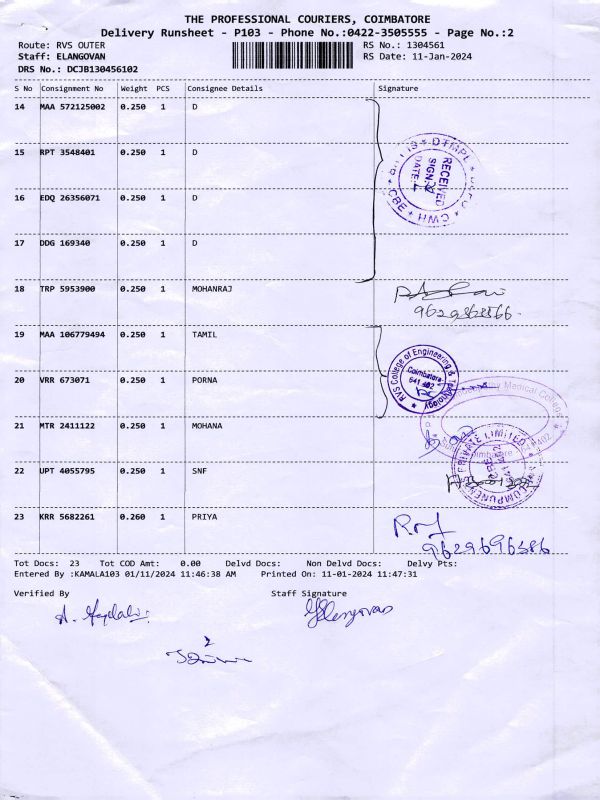 THE PROFESSIONAL COURIERS, COIMBATORE
Delivery Runsheet - P103 - Phone No.:0422-3505555 - Page No.:2
Route: RVS OUTER RS No.: 1304561
Staff: ELANGOVAN RS Date: 11-Jan-2024
DRS No.: DCJB130456102
S No Consignment No Weight PCS Consignee Details Signature
14 MAA 572125002 0.250 1 D
15 RPT 3548401 0.250 1 D
RECEIVED
SIGN.
DATE:
16 EDQ 26356071 0.250 1 D
17 DDG 169340 0.250 1 D
18 TRP 5953900 0.250 1 MOHANRAJ
19 MAA 106779494 0.250 1 TAMIL
RVS College of Engineering & Technology
Coimbatore
641 402
20 VRR 673071 0.250 1 PORNA
Medical College
21 MTR 2411122 0.250 1 MOHANA
PRIVATE LIMITED
22 UPT 4055795 0.250 1 SNF
23 KRR 5682261 0.260 1 PRIYA
9629696386
Tot Docs: 23 Tot COD Amt: 0.00 Delvd Docs: Non Delvd Docs: Delvy Pts:
Entered By :KAMALA103 01/11/2024 11:46:38 AM Printed On: 11-01-2024 11:47:31
Verified By Staff Signature
2